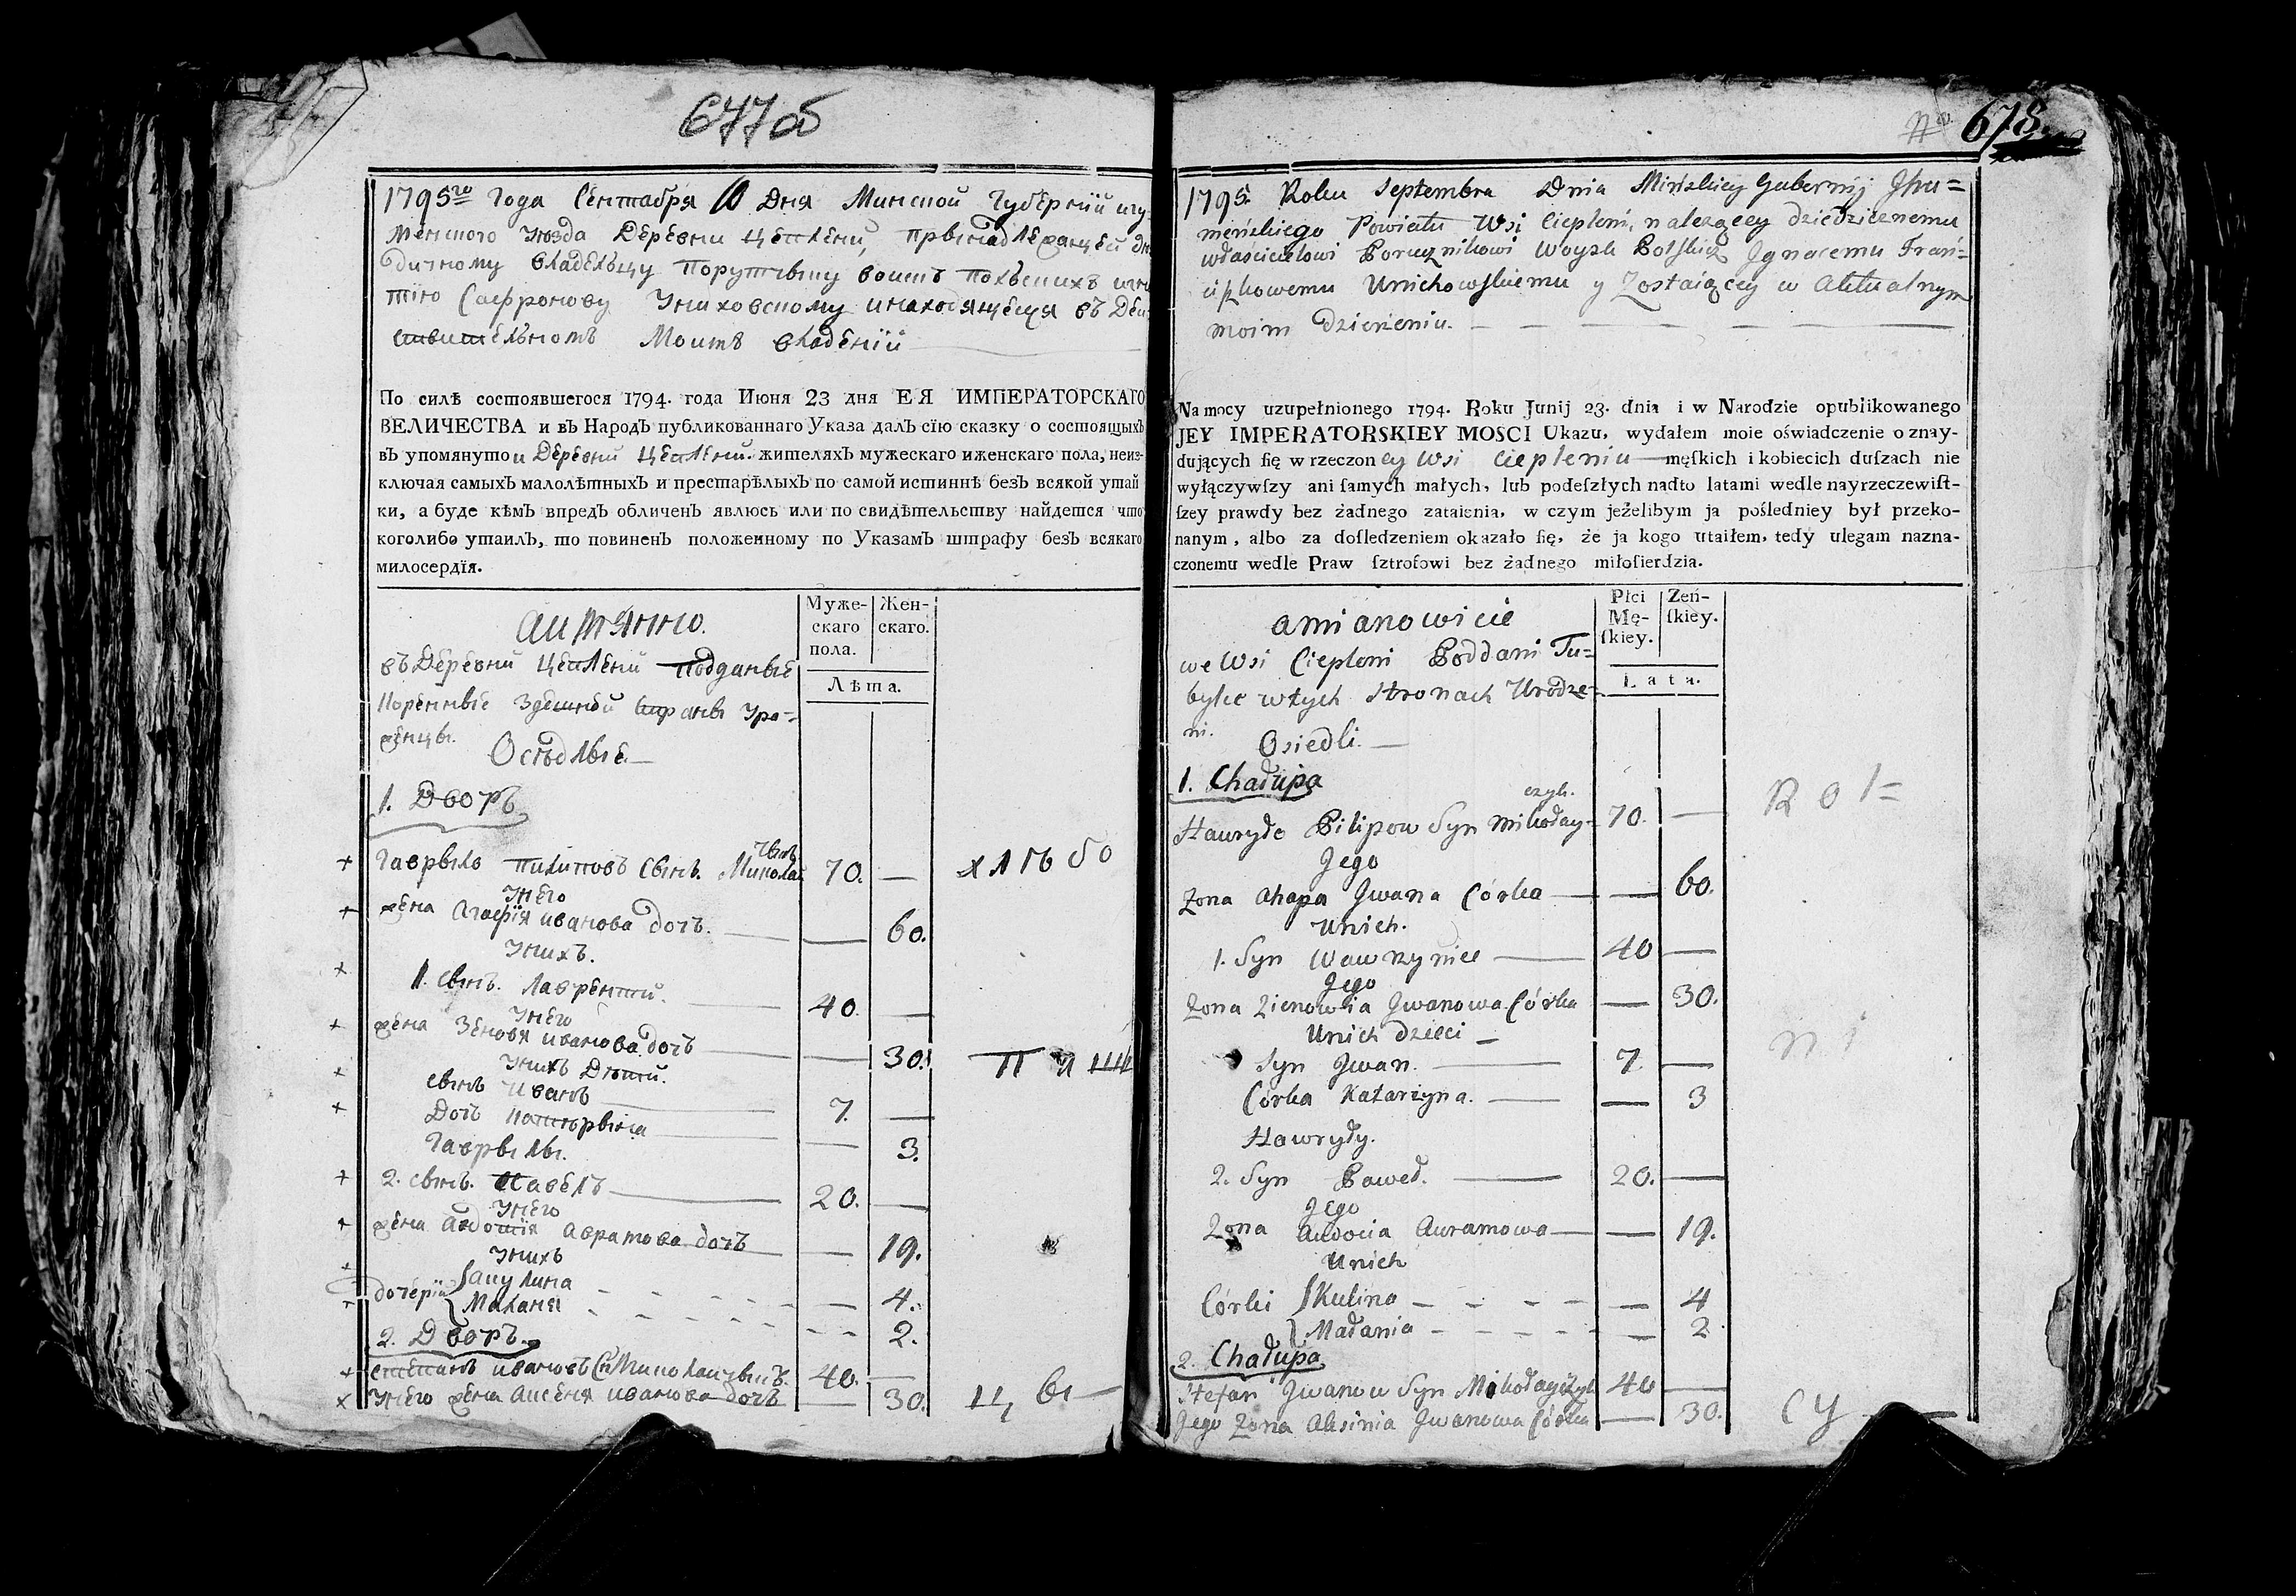 677 об
1795го Года Сентабря 10 Дня Минской Губернии игу-
менского уезда Деревни Цеплени, прынадлежащей
дичному владельцу Порутчыку войскъ польскихъ
Сафронову Униховскому инаходящеися въ Деи-
ствительномъ Моимъ владении
По силѣ состоявшегося 1794. года Июня 23 дня ЕЯ ИМПЕРАТОРСКАГО
ВЕЛИЧЕСТВА и въ Народъ публикованнаго Указа далъ сїю сказку о состоящыхъ
въ упомянутои Деревни Цеплени. жителяхъ мужескаго иженскаго пола, неиз-
ключая самыхъ малолѣтныхъ и престарѣлыхъ по самой истиннѣ безъ всякой утай
ки, а буде кѣмъ впредъ обличенъ явлюсь или по свидѣтельству найдется что
коголибо утаилъ, то повиненъ положенному по Указамъ штрафу безъ всякаго
милосердїя.
аимянно.
Муже-
скаго
пола.
Жен-
скаго.
Лѣта.
въ Деревни Цеплени Подданые
Коренные здешней стараны уро-
женцы.
Оседлые.
1. Дворъ
Гаврыло Пилиповъ сынъ. Миколай
чыкъ 70. —
хлѣбо
унего
жена Агафїя иванова дочь. — 60.
унихъ.
1. сынъ. Лаврентий. 40. —
унего
жена Зеновя иванова дочь — 30.
унихъ Дѣти.
пяш
сынъ Иванъ 7. —
Дочь Катерына — 3.
Гаврылы.
2. сынъ. Павелъ 20. —
унего
жена Авдотїя Аврамова дочь — 19.
унихъ
дочерїи Акулина — 4.
Маланя — 2.
2. Дворъ.
Степанъ ивановъ Сн Миколаичыкъ. 40. —
унего жена Аксеня иванова дочь — 30.
цы
No. 678
1795. Roku Septembra Dnia Mińskiey Gubernij Jhu=
meńskiego Powiatu Wsi Ciepleni, należącey dziedzicznemu
właścicielowi Porucznikowi Woysk Polskich Jgnacemu Fran=
ciszkowemu Unichowskiemu y Zostaiącey w Aktualnym
moim dzierżeniu.
Na mocy uzupełnionego 1794. Roku Junij 23. dnia i w Narodzie opublikowanego
JEY IMPERATORSKIEY MOSCI Ukazu, wydałem moie oświadczenie o znay-
dujących ſię w rzeczoney Wsi Ciepleniu męſkich i kobiecich duſzach nie
wyłączywſzy ani ſamych małych, lub podeſzłych nadto latami wedle nayrzeczewiſt-
ſzey prawdy bez żadnego zataienia, w czym jeżelibym ja pośledniey był przeko-
nanym, albo za doſledzeniem okazało ſię, że ja kogo utaiłem, tedy ulegam nazna-
czonemu wedle Praw ſztrofowi bez żadnego miłoſierdzia.
amianowicie
Płci
Mę-
ſkiey.
Żeń-
ſkiey.
Lata.
we Wsi Ciepleni Poddani Tu=
bylce wtych Stronach Urodze-
ni.
Osiedli.
1. Chałupa
Hawryło Pilipow Syn Mikołay-
czyk. 70. —
Rol=
Jego
Żona Ahapa Jwana Córka — 60.
Unich.
1. Syn Wawrzyniec 40 —
Jego
Żona Zienowia Jwanowa Córka — 30.
Unich dzieci
ni
Syn Jwan. 7. —
Córka Katarzyna. — 3
Hawryły.
2. Syn Paweł. 20. —
Jego
Żona Audocia Auramowa — 19.
Unich
Córki Kulina — 4
Małania — 2
2. Chałupa
Stefan Jwanow Syn Mikołayczyk 40 —
Jego Żona Aksinia Jwanowa Córka — 30.
cy